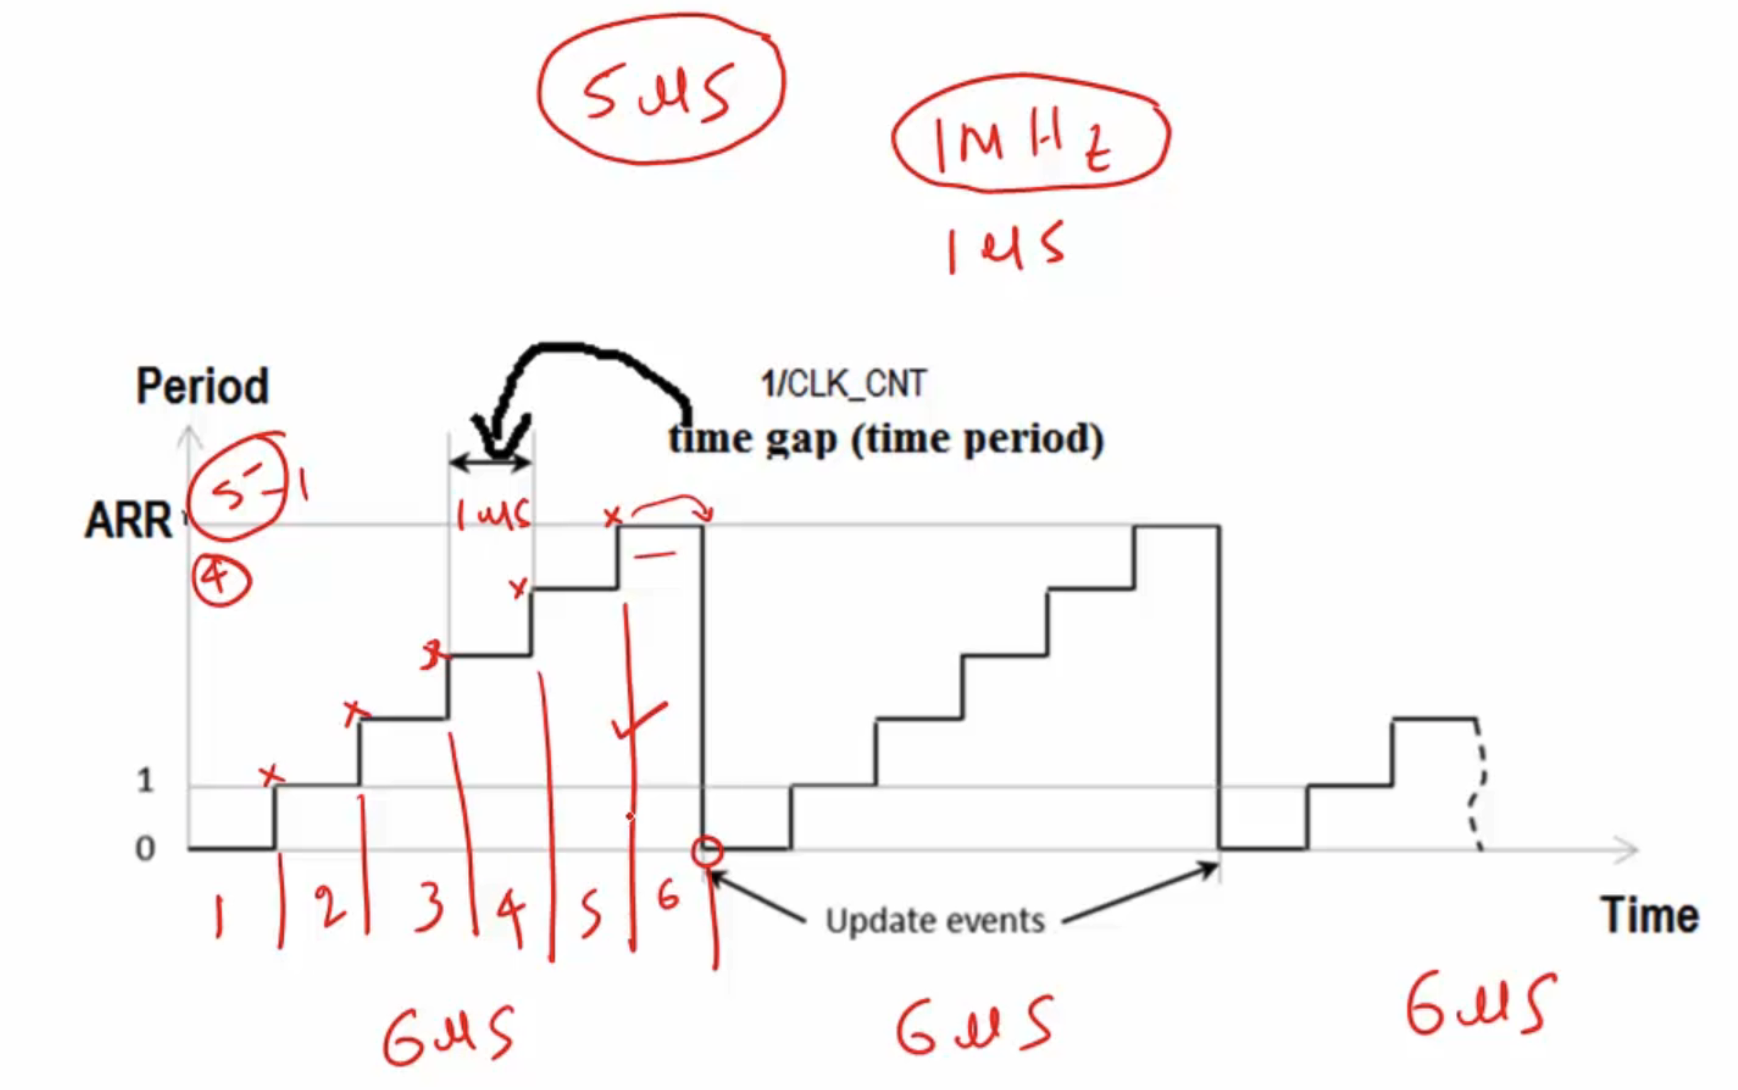 5 μs
1 MHz
1 μs
Period
1/CLK_CNT
time gap (time period)
5-1
ARR
1 μs
4
1
0
1 2 3 4 5 6
Update events
Time
6 μs 6 μs 6 μs